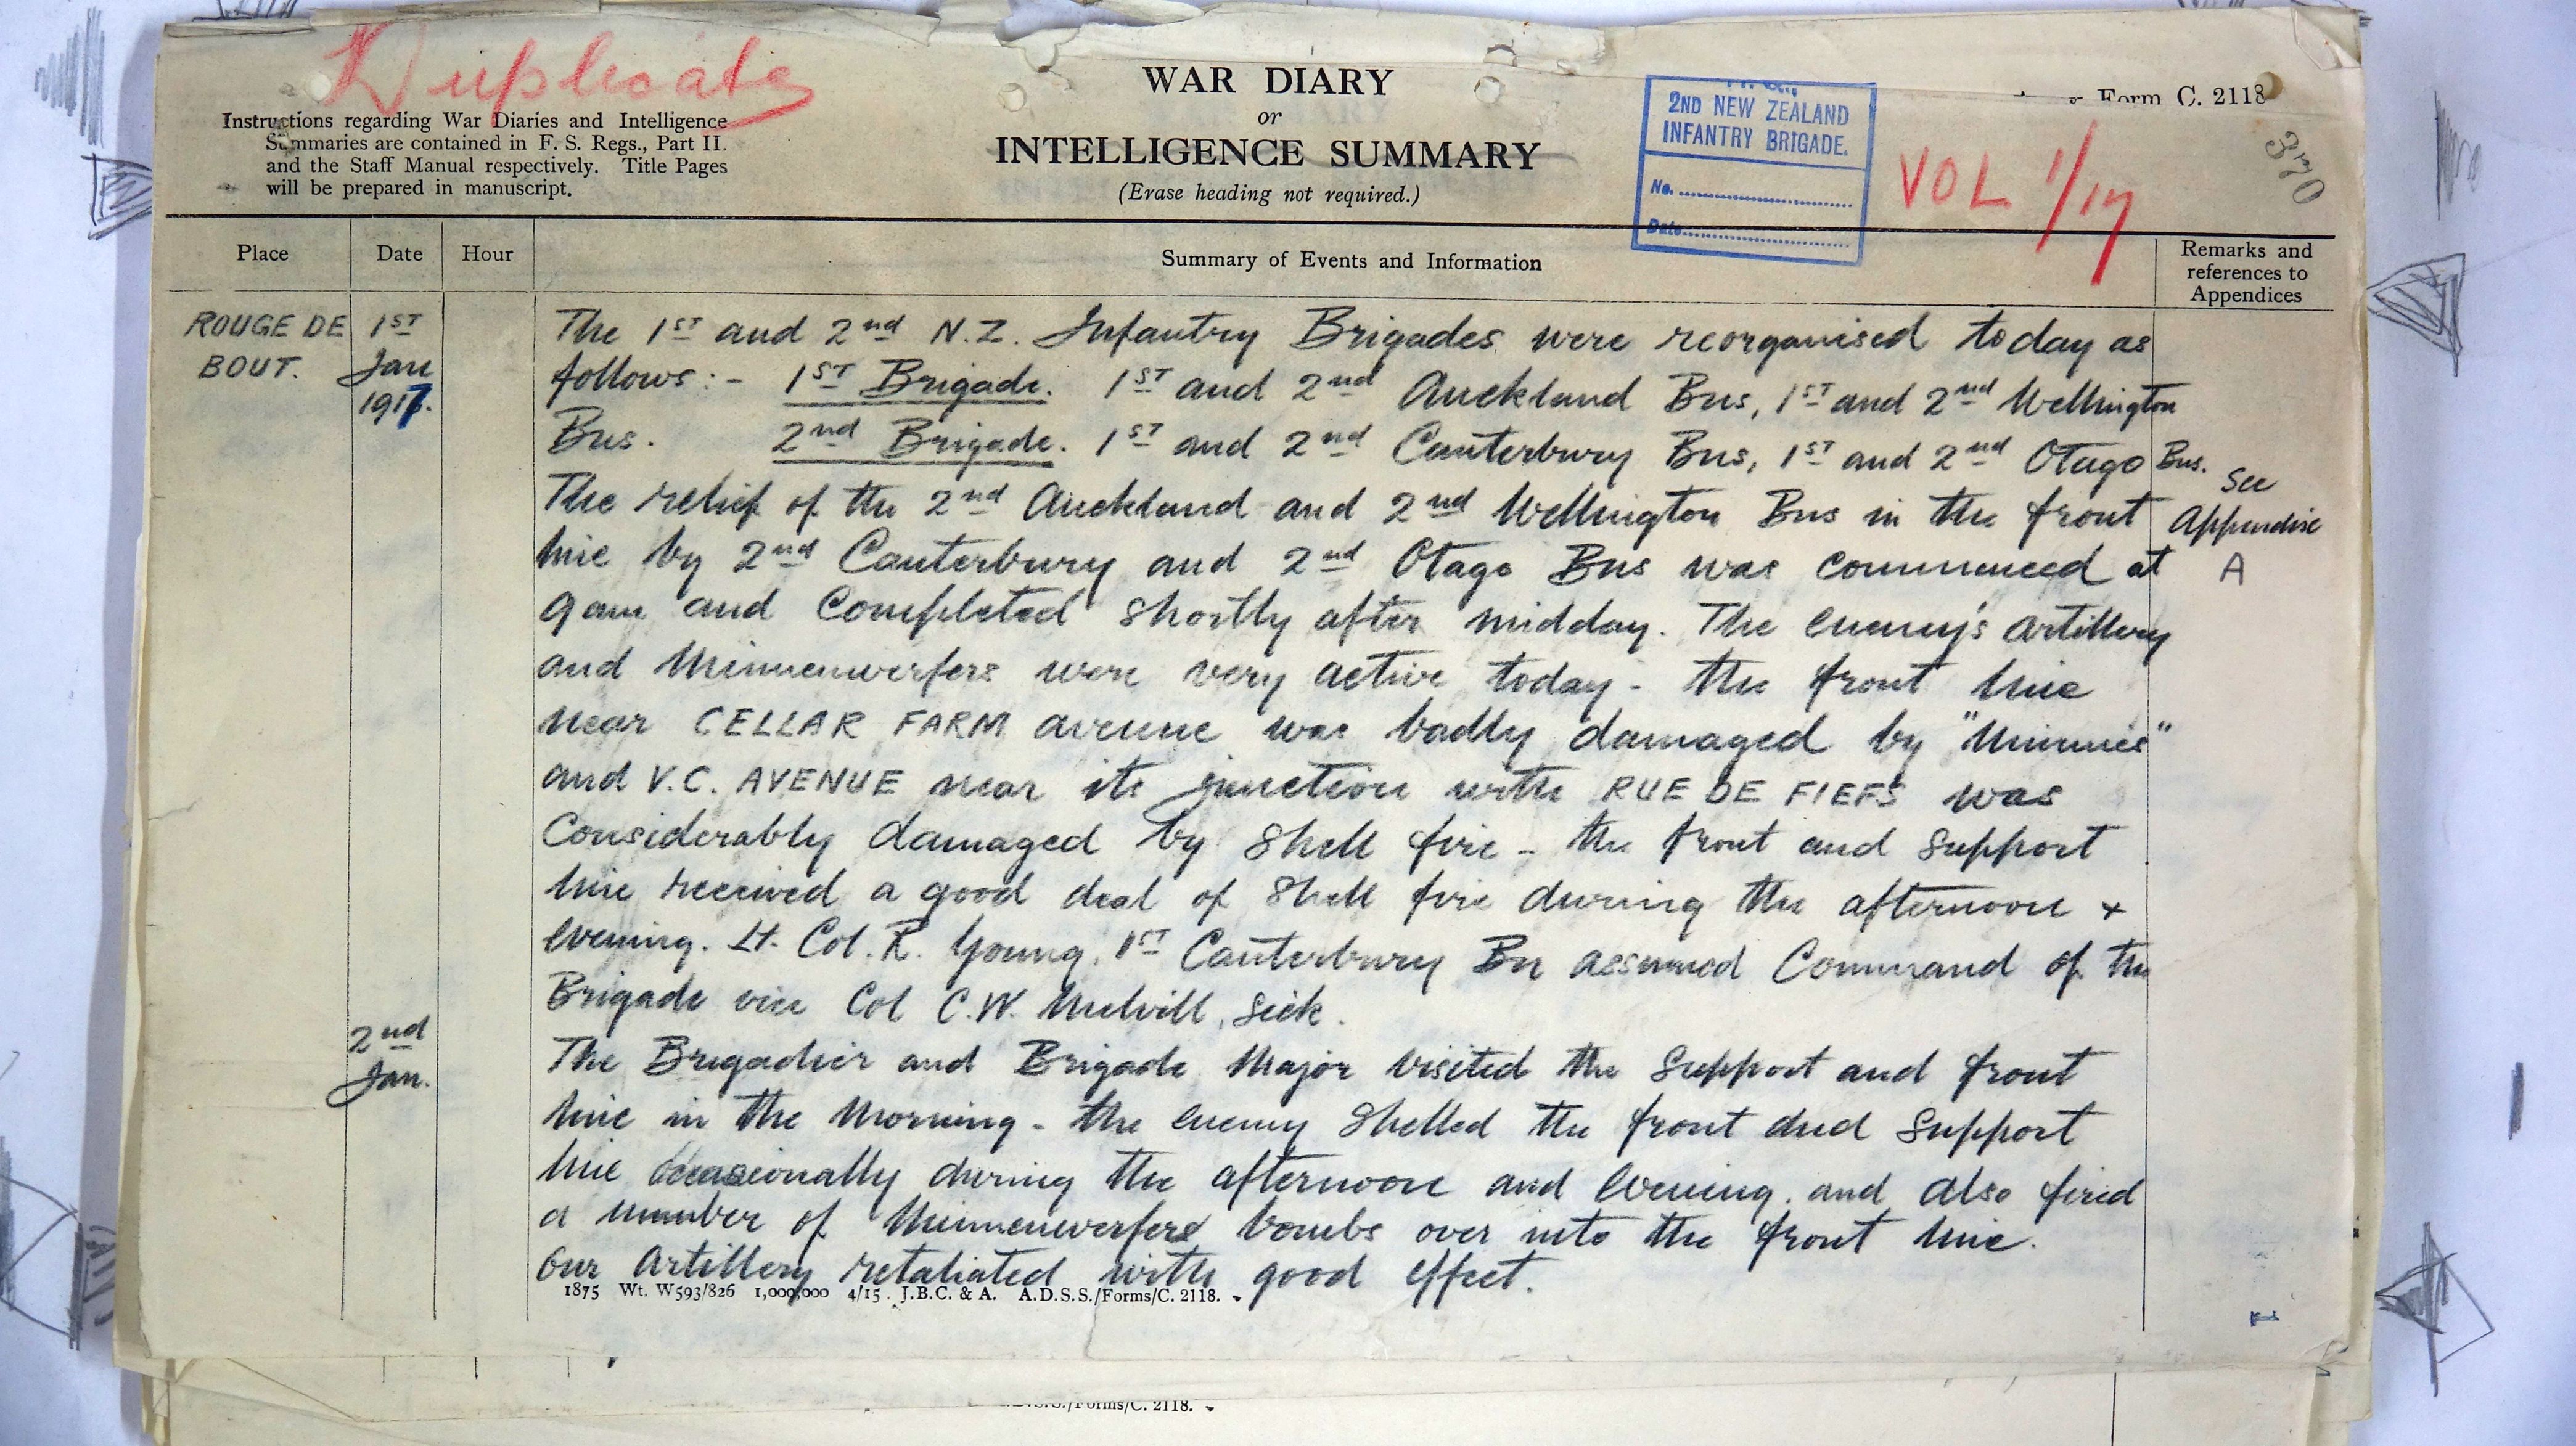 Duplicate
WAR DIARY
or
INTELLIGENCE SUMMARY
(Erase heading not required.)
Instructions regarding War Diaries and Intelligence
Summaries are contained in F. S. Regs., Part II.
and the Staff Manual respectively. Title Pages
will be prepared in manuscript.
2ND NEW ZEALAND
INFANTRY BRIGADE.
No.
Date
Form C. 2118
VOL 1/17
Place
Date
Hour
Summary of Events and Information
Remarks and
references to
Appendices
ROUGE DE
BOUT.
1ST
Jan
1917.
The 1ST and 2nd N.Z. Infantry Brigades were reorganised today as
follows:- 1ST Brigade. 1ST and 2nd Auckland Bns, 1ST and 2nd Wellington
Bns. 2nd Brigade. 1ST and 2nd Canterbury Bns, 1ST and 2nd Otago Bns.
The relief of the 2nd Auckland and 2nd Wellington Bns in the front
line by 2nd Canterbury and 2nd Otago Bns was commenced at
9am and completed shortly after midday. The enemy's artillery
and Minnenwerfers were very active today - the front line
near CELLAR FARM avenue was badly damaged by "Minnies"
and V.C. AVENUE near its junction with RUE DE FIEFS was
considerably damaged by shell fire - the front and support
line received a good deal of shell fire during the afternoon +
evening. Lt. Col. R. Young, 1ST Canterbury Bn assumed Command of the
Brigade vice Col C.W. Melvill, sick.
See
Appendix
A
2nd
Jan.
The Brigadier and Brigade Major visited the support and front
line in the morning - the enemy shelled the front and support
line occasionally during the afternoon and evening, and also fired
a number of Minnenwerfers bombs over into the front line.
Our artillery retaliated with good effect.
1875 Wt. W593/826 1,000,000 4/15 J.B.C. & A. A.D.S.S./Forms/C. 2118.
1
/Forms/C. 2118.